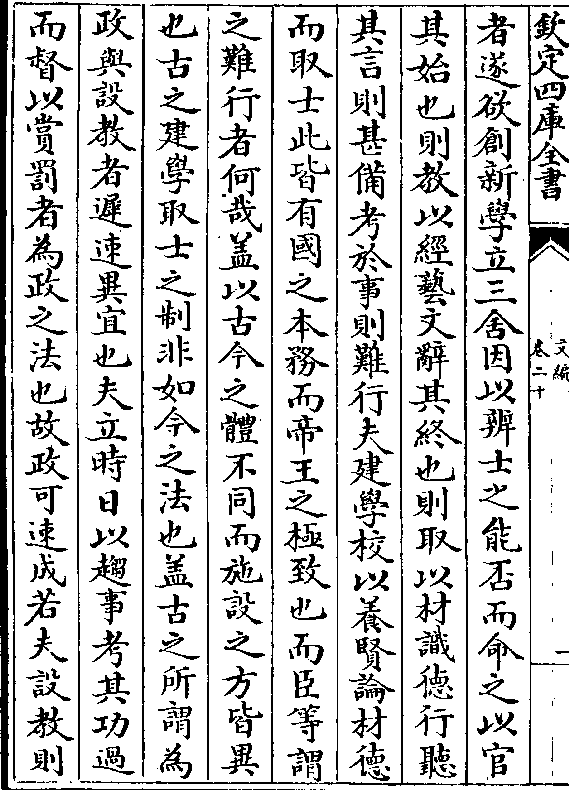 欽定四庫全書
文編
卷二十
者遂欲創新學立三舍因以辨士之能否而命之以官
其始也則教以經藝文辭其終也則取以材識德行聽
其言則甚備考於事則難行夫建學校以養賢論材德
而取士此皆有國之本務而帝王之極致也而臣等謂
之難行者何哉盖以古今之體不同而施設之方皆異
也古之建學取士之制非如今之法也盖古之所謂為
政與設教者遲速異宜也夫立時日以趨事考其功過
而督以賞罰者為政之法也故政可速成若夫設教則